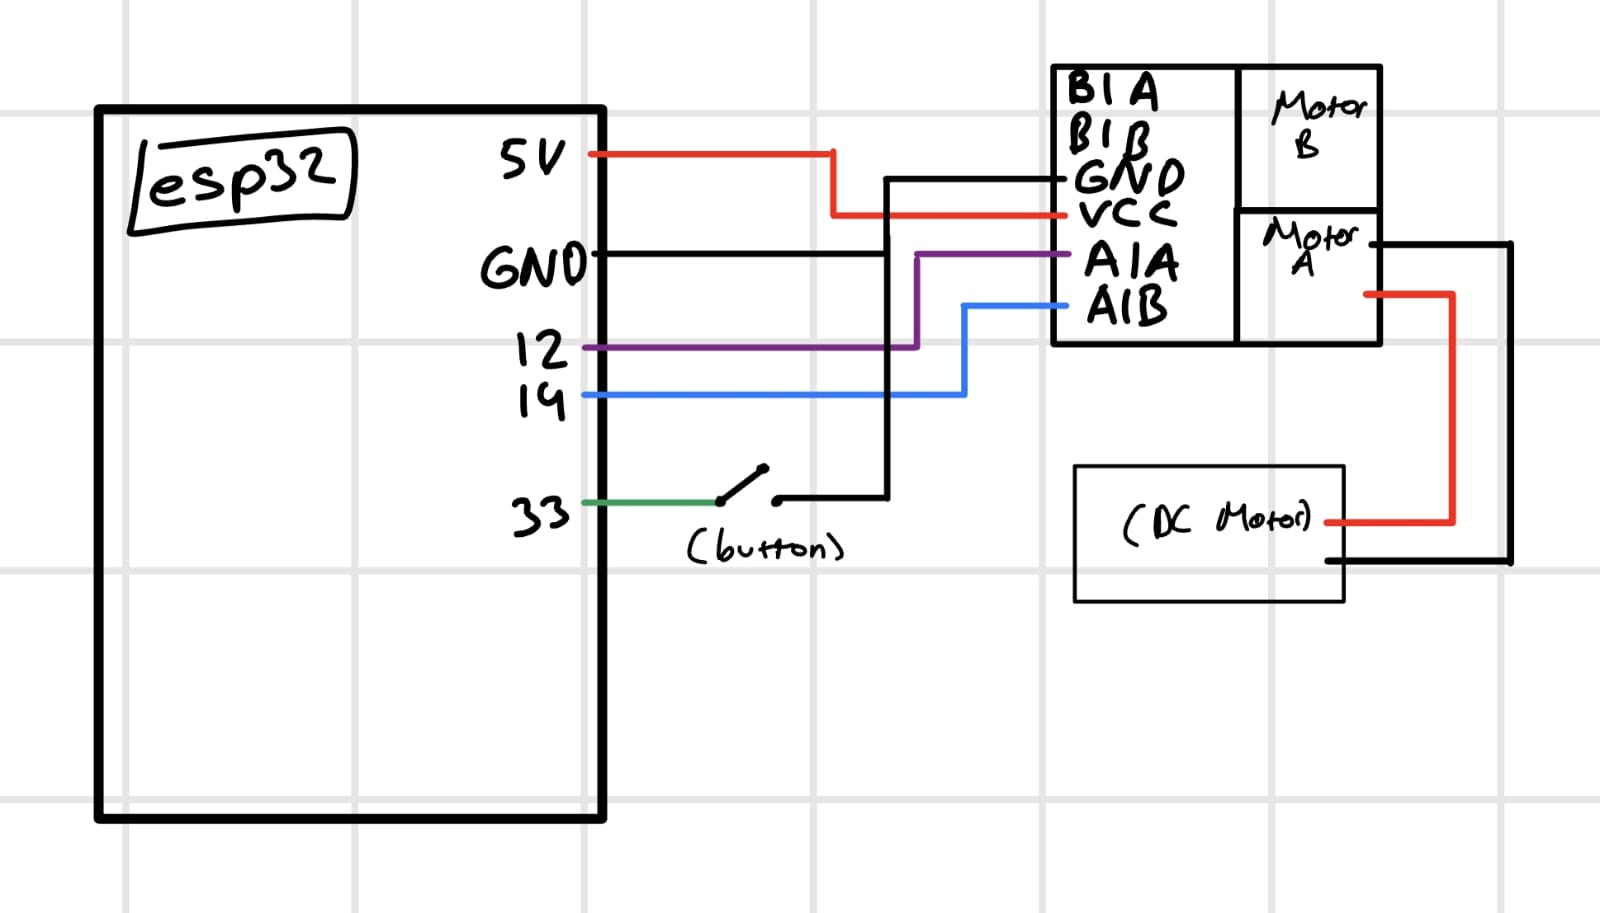 esp32
5V
GND
12
19
33
(button)
B1A
B1B
GND
VCC
A1A
A1B
Motor
B
Motor
A
(DC Motor)